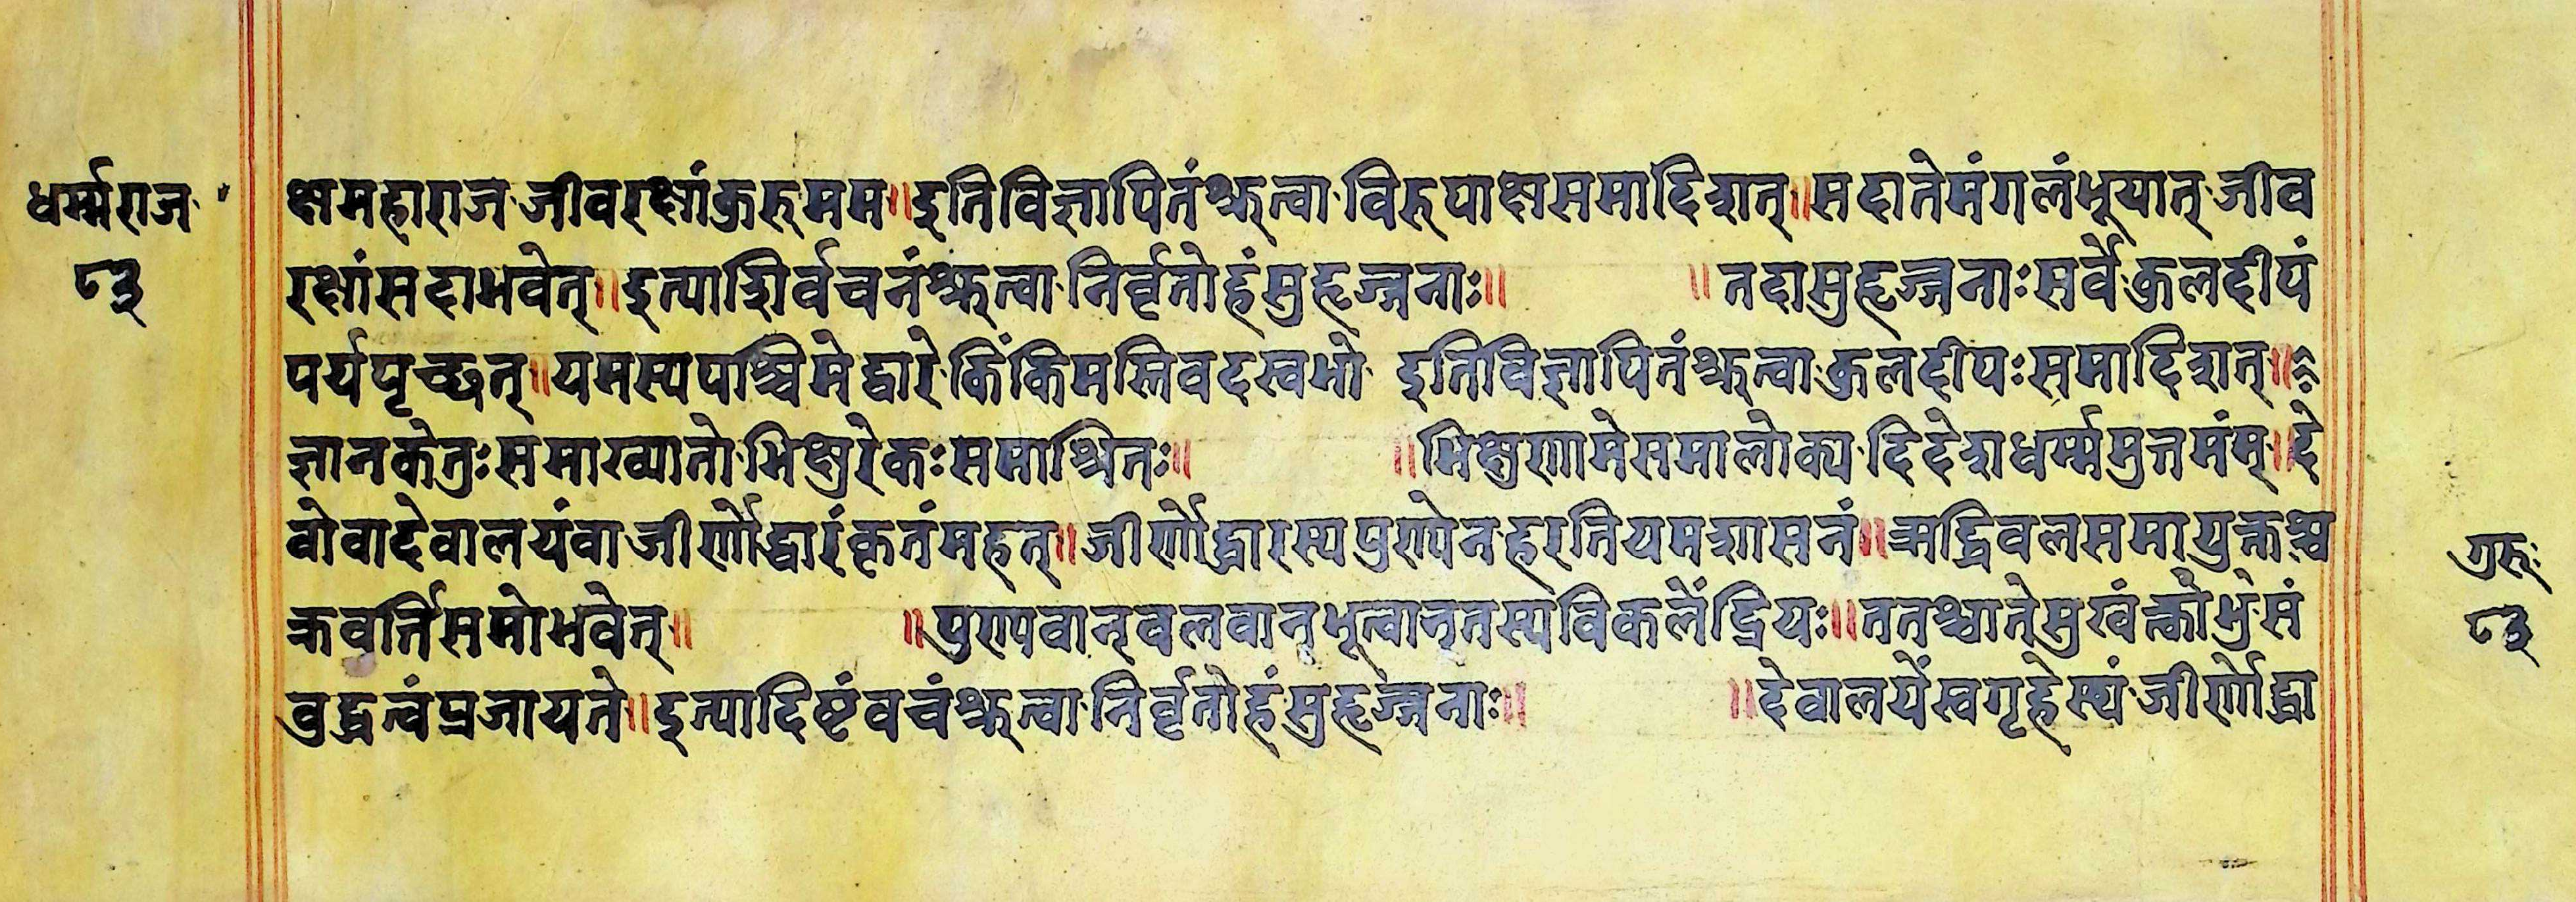 धर्म्मराज
८३
क्षमहाराज जीवरक्षांकुरुमम॥इतिविज्ञापितंश्रुत्वा विरुपाक्षसमादिशत्॥सदातेमंगलंभूयात् जीव
रक्षांसदाभवेत्॥इत्याशिर्वचनंश्रुत्वा निर्वृतोहंसुहृज्जनाः॥ ॥तदासुहृज्जनाःसर्वे कुलदीपं
पर्यपृच्छत्॥यमस्यपश्चिमेद्वारे किंकिमस्तिवदस्वभो इतिविज्ञापितंश्रुत्वा कुलदीपःसमादिशत्॥
ज्ञानकेतुःसमाख्यातो भिक्षुरेकःसमाश्रितः॥ ॥भिक्षुणामेसमालोक्य दिदेशधर्म्ममुत्तमंम्॥दे
वोवादेवालयंवा जीर्णोद्धारंकृतंमहत्॥जीर्णोद्धारस्यपुण्येन हरतियमशासनं॥ऋद्धिवलसमायुक्तश्च
क्रवर्त्तिसमोभवेत्॥ ॥पुण्यवान्वलवान्भूत्वान्तस्यविकलेंद्रियः॥ततश्चान्तेसुखं
वुद्धत्वंप्रजायते॥इत्यादिष्टंवचंश्रुत्वा निर्वृतोहंसुहृज्जनाः॥ ॥देवालयेंस्वगृहे जीर्णोद्धा
गुरुः
८३